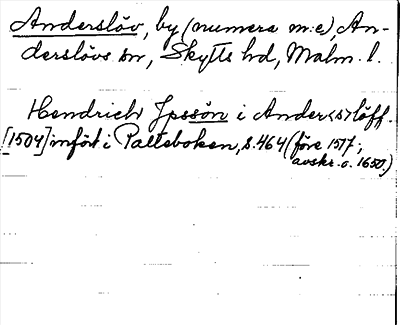 Anderslöv, by (numera m:e), An-
derslövs sn, Skytts hd, Malm. l.
Hendrich Jpssön i Ander<s>löff.
[1504] infört i Palteboken, s. 464 (före 1517;
avskr. o. 1650.)